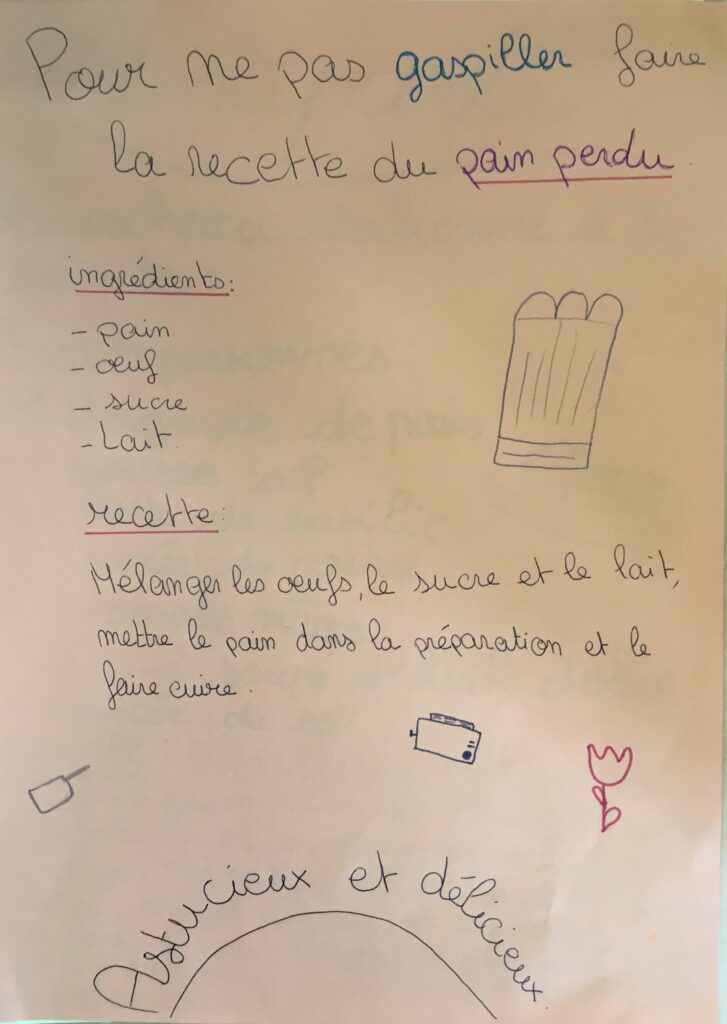 Pour ne pas gaspiller faire
la recette du pain perdu.
ingrédients:
- pain
- œuf
- sucre
- Lait.
recette:
Mélanger les œufs, le sucre et le lait,
mettre le pain dans la préparation et le
faire cuire.
Astucieux et délicieux.